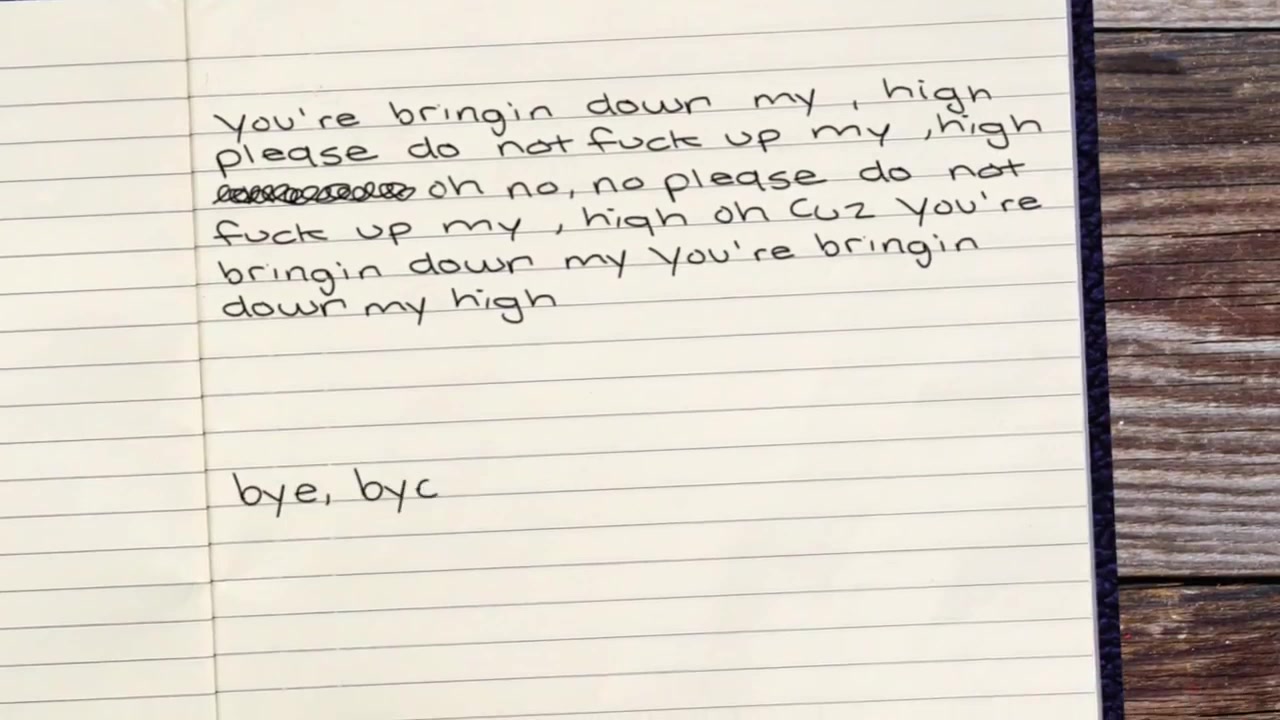 You're bringin down my , high
please do not fuck up my ,high
oh no, no please do not
fuck up my , high oh cuz you're
bringin down my you're bringin
down my high
bye, byc